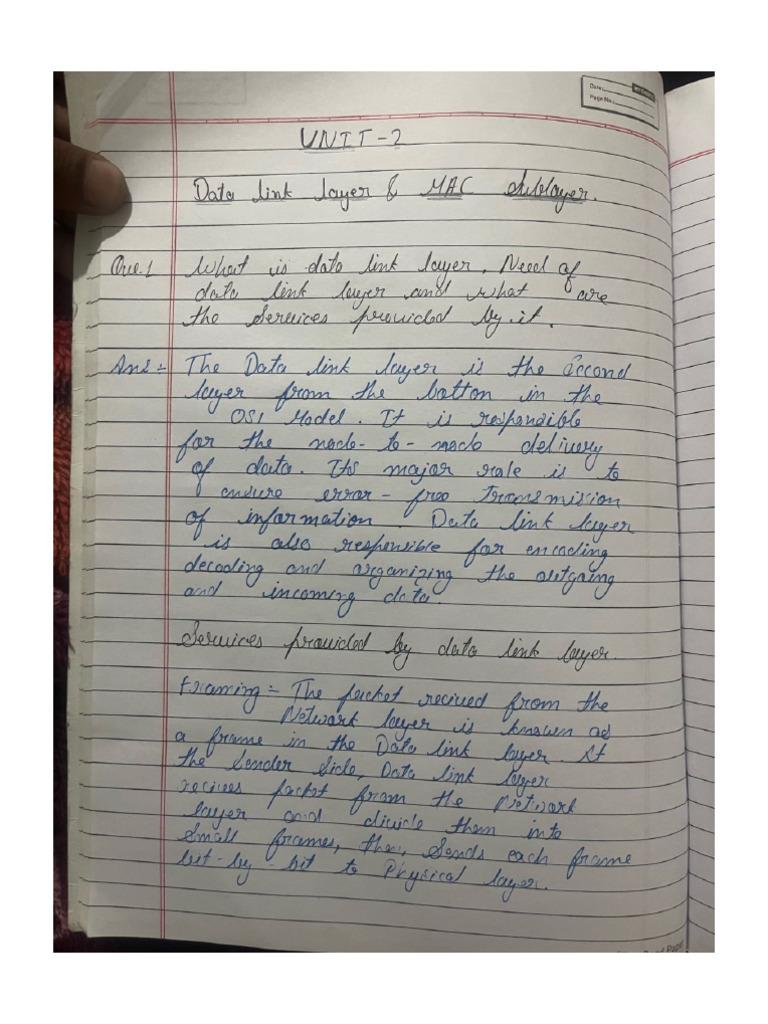 Date:
Page No.
UNIT-2
Data link layer & MAC sublayer.
Que.1 What is data link layer. Need of
data link layer and what are
the services provided by it.
Ans:- The Data link layer is the second
layer from the bottom in the
OSI Model. It is responsible
for the node-to-node delivery
of data. Its major role is to
ensure error-free transmision
of information. Data link layer
is also responsible for encoding
decoding and organizing the outgoing
and incoming data.
Services provided by data link layer.
Framing:- The packet recived from the
Network layer is known as
a frame in the Data link layer. At
the sender side, Data link layer
recives packet from the Network
layer and divide them into
small frames, then, sends each frame
bit-by-bit to Physical layer.